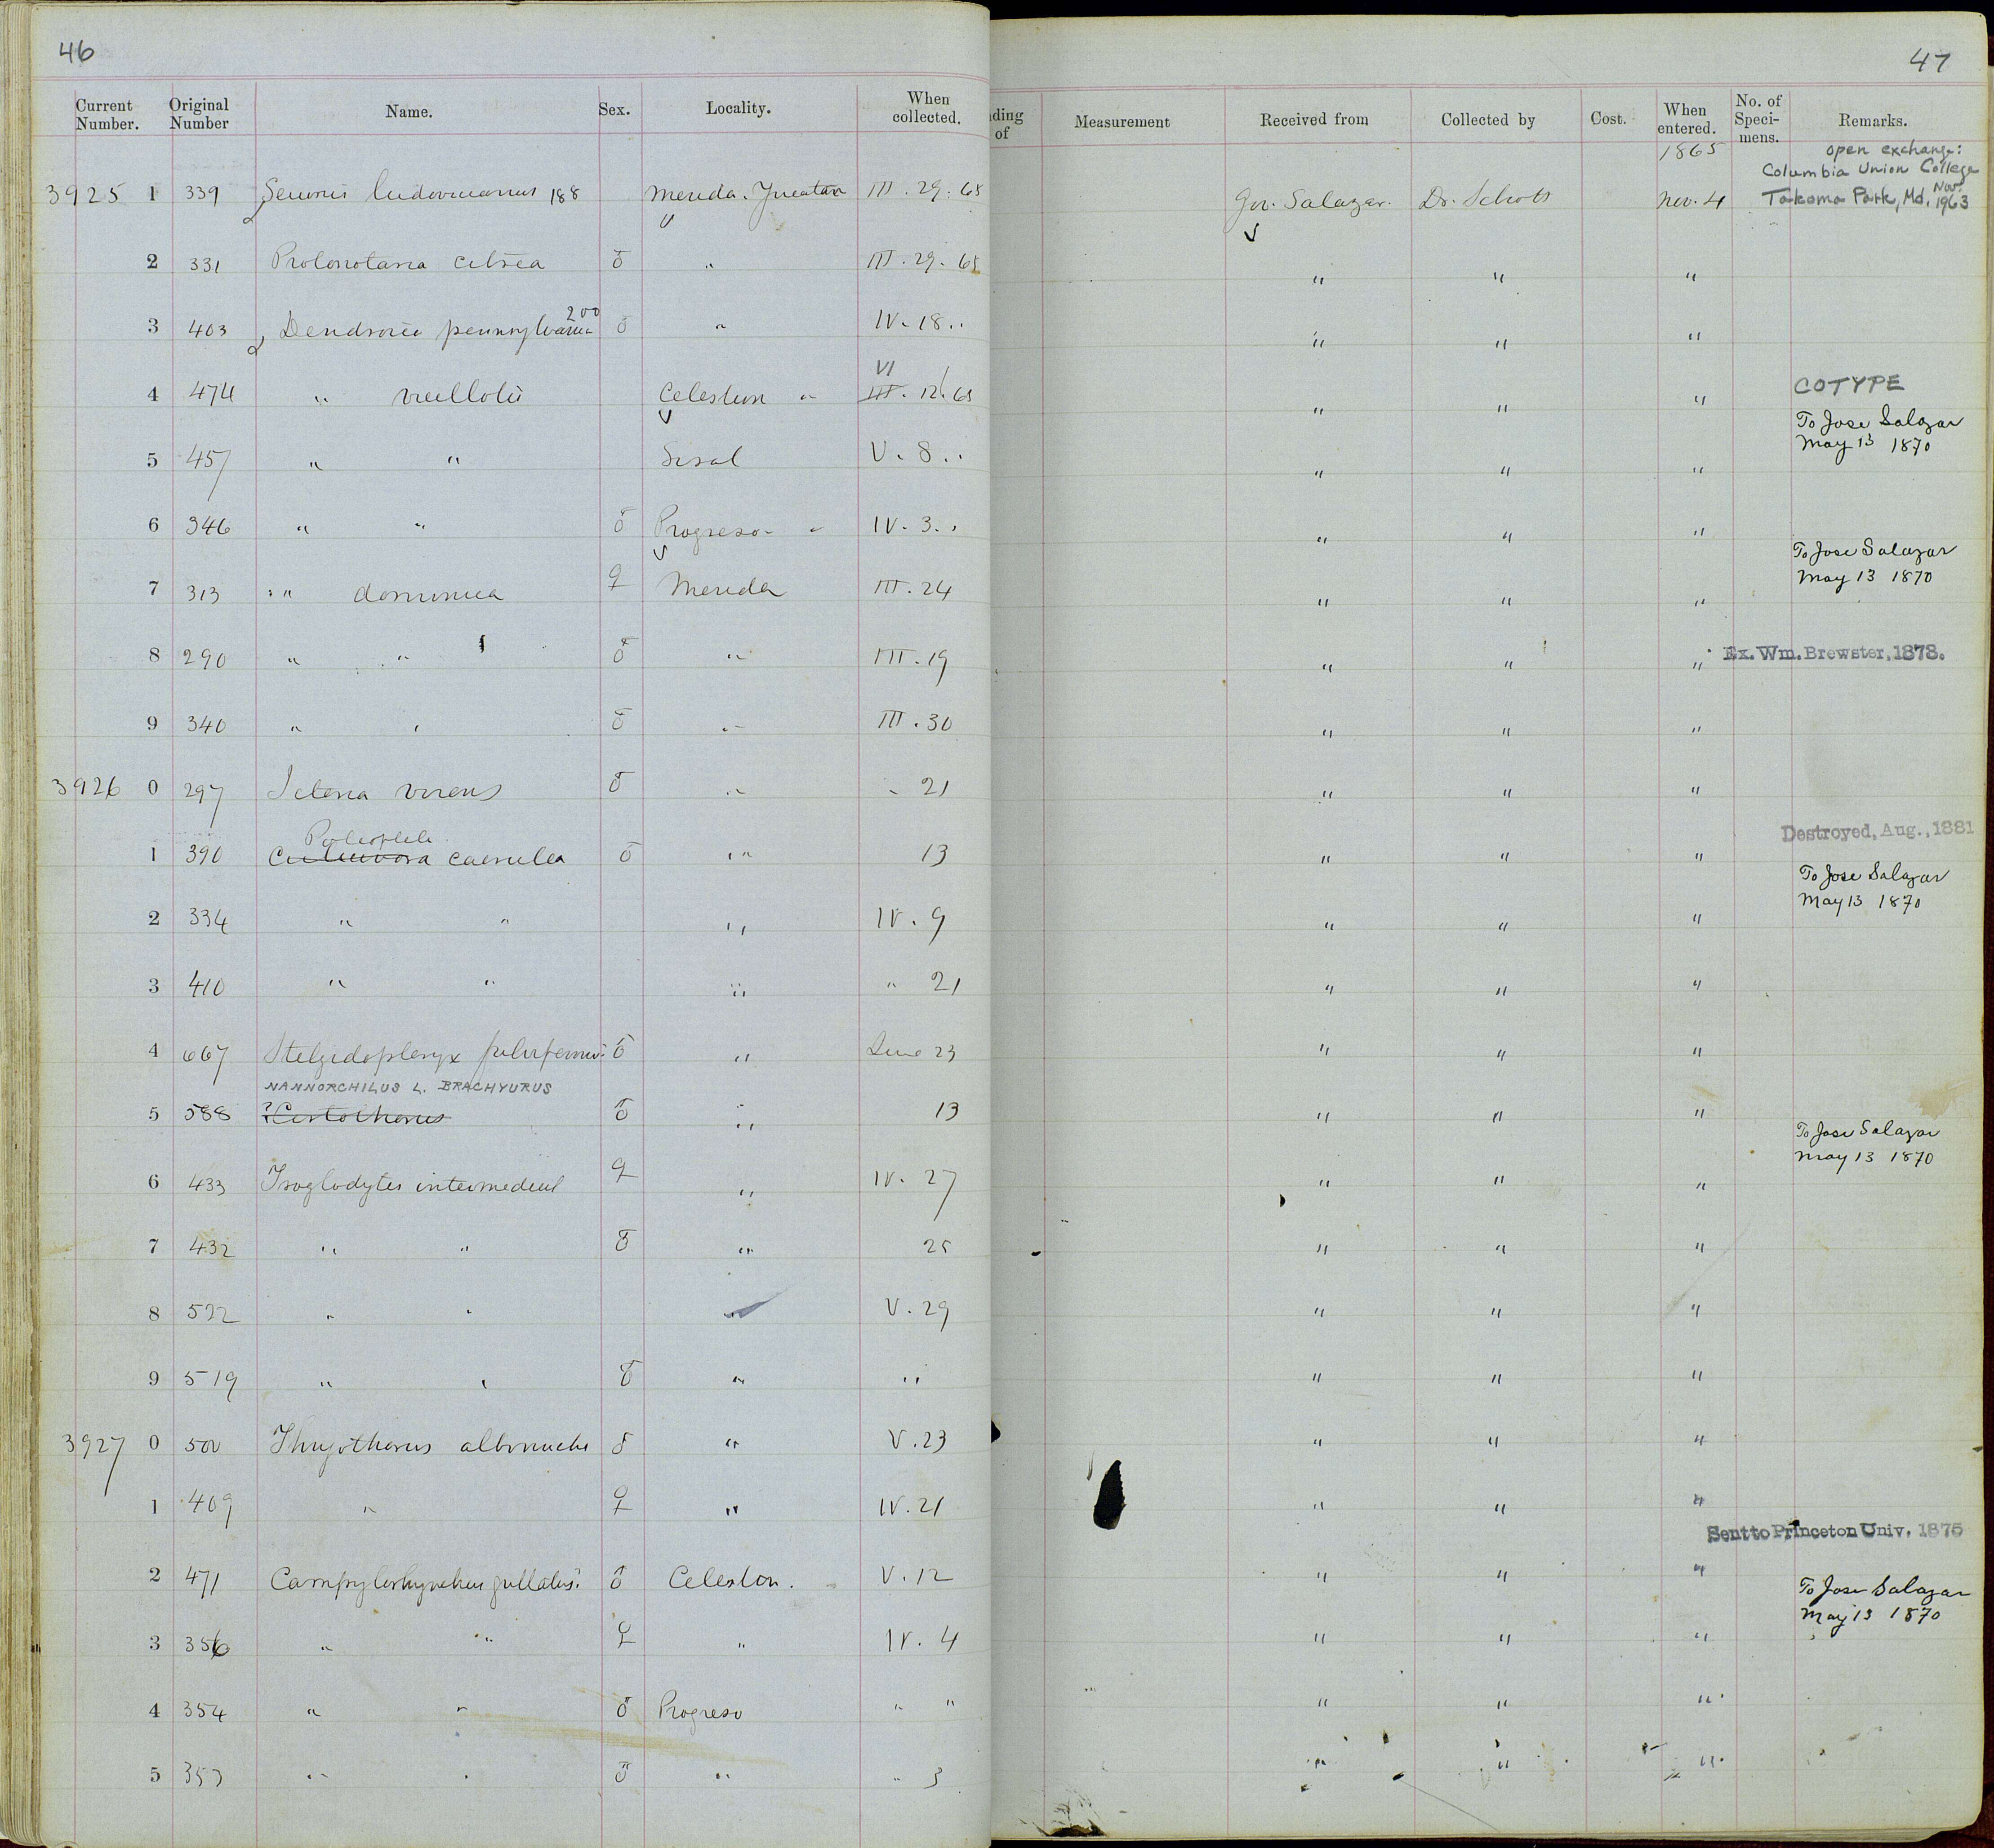 46
Current Number. Original Number Name. Sex. Locality. When collected.
39251 339 Seiurus ludovicianus 188 Merida. Yucatan III. 29. 65
2 331 Protonotaria citrea ♂ " III. 29. 65
3 403 Dendroica pennsylvanica 200 ♂ " IV. 18 "
VI
4 474 " vieilloti Celestun " III. 12. 65
5 457 " " Sisal V. 8 "
6 346 " " ♂ Progreso " IV. 3 "
7 313 " dominica ♀ Merida III. 24
8 290 " " ♂ " III. 19
9 340 " " ♂ " III. 30
39260 297 Icteria virens ♂ " " 21
Polioptila
1 390 Culicivora caerulea ♂ " 13
2 334 " " " IV. 9
3 410 " " " " 21
4 667 Stelgidopteryx fulvipennis ♂ " June 23
NANNORCHILUS L. BRACHYURUS
5 588 ? Cistothorus ♂ " 13
6 433 Troglodytes intermedius ♀ " IV. 27
7 432 " " ♂ " 25
8 522 " " " V. 29
9 519 " " ♂ " "
39270 500 Thryothorus albinucha ♂ " V. 23
1 409 " ♀ " IV. 21
2 471 Campylorhynchus guttatus. ♂ Celestun. V. 12
3 356 " " ♀ " IV. 4
4 354 " " ♂ Progreso " "
5 353 " " ♂ " " 3
47
ding of Measurement Received from Collected by Cost. When entered. No. of Speci- mens. Remarks.
1865 open exchange:
Columbia Union College
Gov. Salazar. Dr. Schott Nov. 4 Takoma Park, Md. Nov. 1963
" " "
" " "
COTYPE
" " "
To Jose Salazar
May 13 1870
" " "
" " "
To Jose Salazar
May 13 1870
" " "
" " " Ex. Wm. Brewster, 1878.
" " "
" " "
Destroyed, Aug., 1881
" " "
To Jose Salazar
May 13 1870
" " "
" " "
" " "
" " "
To Jose Salazar
May 13 1870
" " "
" " "
" " "
" " "
" " "
" " "
Sent to Princeton Univ. 1875
" " "
To Jose Salazar
May 13 1870
" " "
" " "
" " "